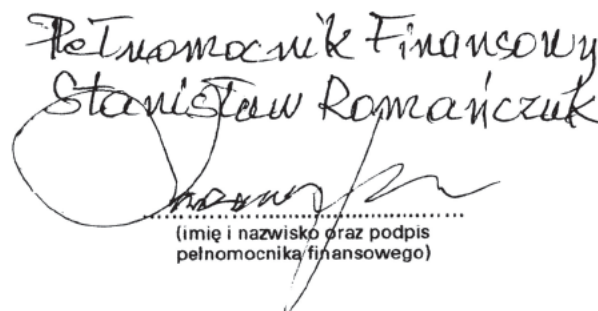 Pełnomocnik Finansowy
Stanisław Romańczuk
................................................
(imię i nazwisko oraz podpis
pełnomocnika finansowego)